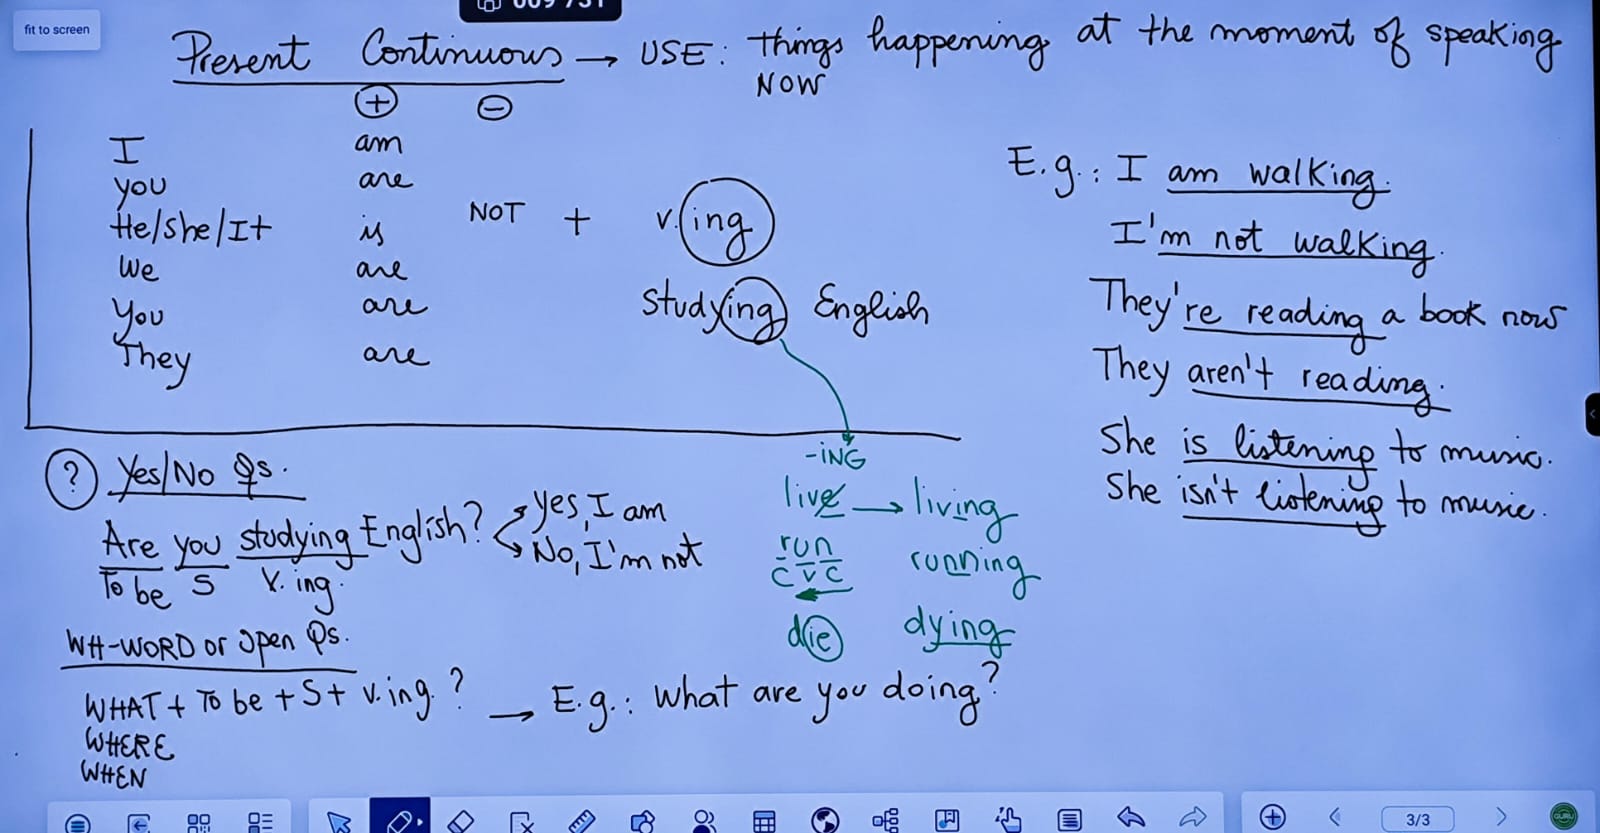 fit to screen
Present Continuous → USE: Things happening at the moment of speaking
NOW
+ -
I am
you are
He/she/It is NOT + v.ing
We are
You are studying English
They are
E.g.: I am walking.
I'm not walking.
They're reading a book now
They aren't reading.
She is listening to music.
She isn't listening to music.
? Yes/No Qs.
Are you studying English? Yes, I am
No, I'm not
To be S V. ing.
-ING
live → living
run running
c v c
die dying
WH-WORD or open Qs.
WHAT + To be + S + v.ing.? → E.g.: What are you doing?
WHERE
WHEN
3/3
GURU